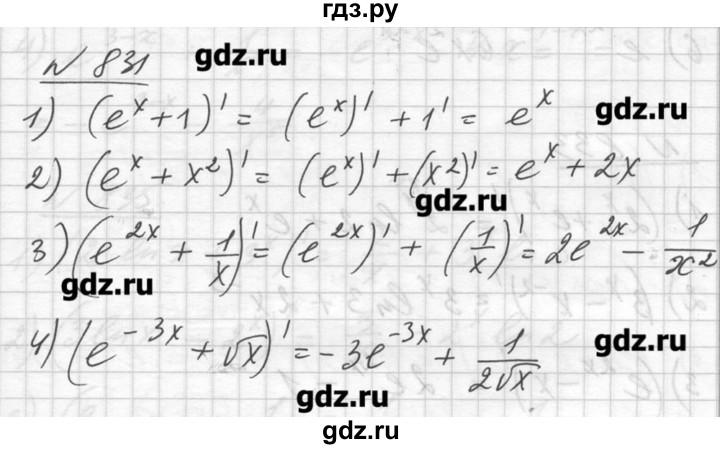 гдз.ру
№ 831
gdz.ru
1) (eˣ + 1)' = (eˣ)' + 1' = eˣ
gdz.ru
2) (eˣ + x²)' = (eˣ)' + (x²)' = eˣ + 2x
gdz.ru
3) (e²ˣ + 1/x)' = (e²ˣ)' + (1/x)' = 2e²ˣ − 1/x²
gdz.ru
4) (e⁻³ˣ + √x)' = −3e⁻³ˣ + 1/(2√x)
gdz.ru
gdz.ru
gdz.ru